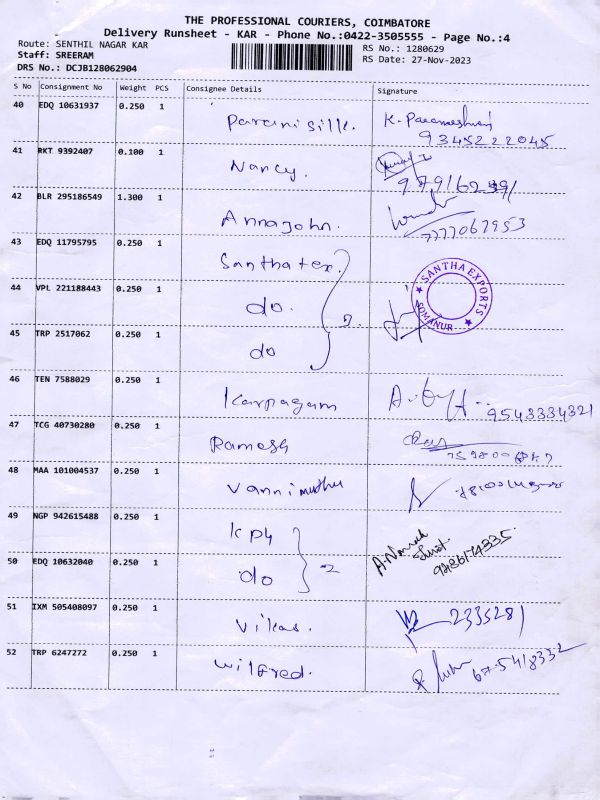 THE PROFESSIONAL COURIERS, COIMBATORE
Delivery Runsheet - KAR - Phone No.:0422-3505555 - Page No.:4
Route: SENTHIL NAGAR KAR
RS No.: 1280629
Staff: SREERAM
RS Date: 27-Nov-2023
DRS No.: DCJB128062904
S No Consignment No Weight PCS Consignee Details Signature
40 EDQ 10631937 0.250 1 Parani silk. K. Parameshwari
9345222045
41 RKT 9392407 0.100 1 Nancy.
42 BLR 295186549 1.300 1 Annajohn.
7777067953
43 EDQ 11795795 0.250 1 Santhatex.
44 VPL 221188443 0.250 1 do. SANTHA EXPORTS SOMANUR
45 TRP 2517062 0.250 1 do
46 TEN 7588029 0.250 1 Karpagam
9543334321
47 TCG 40730280 0.250 1 Ramesh
48 MAA 101004537 0.250 1 Vannimuthu
49 NGP 942615488 0.250 1 KPY
50 EDQ 10632040 0.250 1 do 2
51 IXM 505408097 0.250 1 Vikas. 2335281
52 TRP 6247272 0.250 1 wilfred.